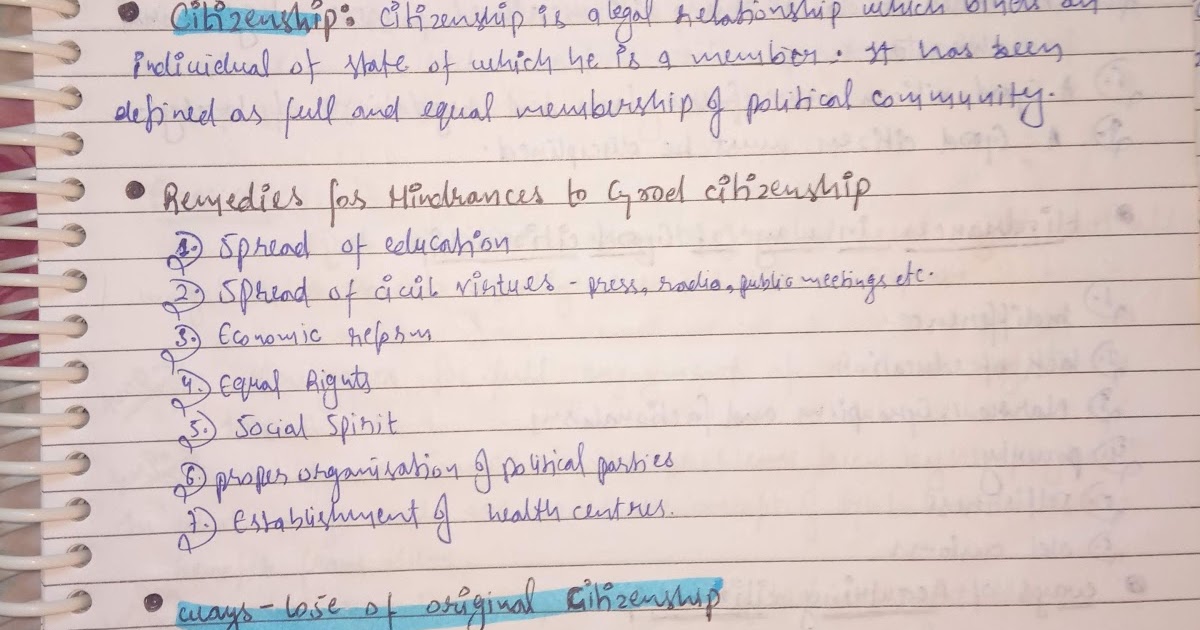 • Citizenship: Citizenship is a legal relationship which binds an
individual of state of which he is a member. It has been
defined as full and equal membership of political community.
• Remedies for Hindrances to Good citizenship
1. Spread of education
2. Spread of civil virtues - press, radio, public meetings etc.
3. Economic reform
4. Equal Rights
5. Social Spirit
6. proper organisation of political parties
7. Establishment of health centres.
• ways - lose of original Citizenship